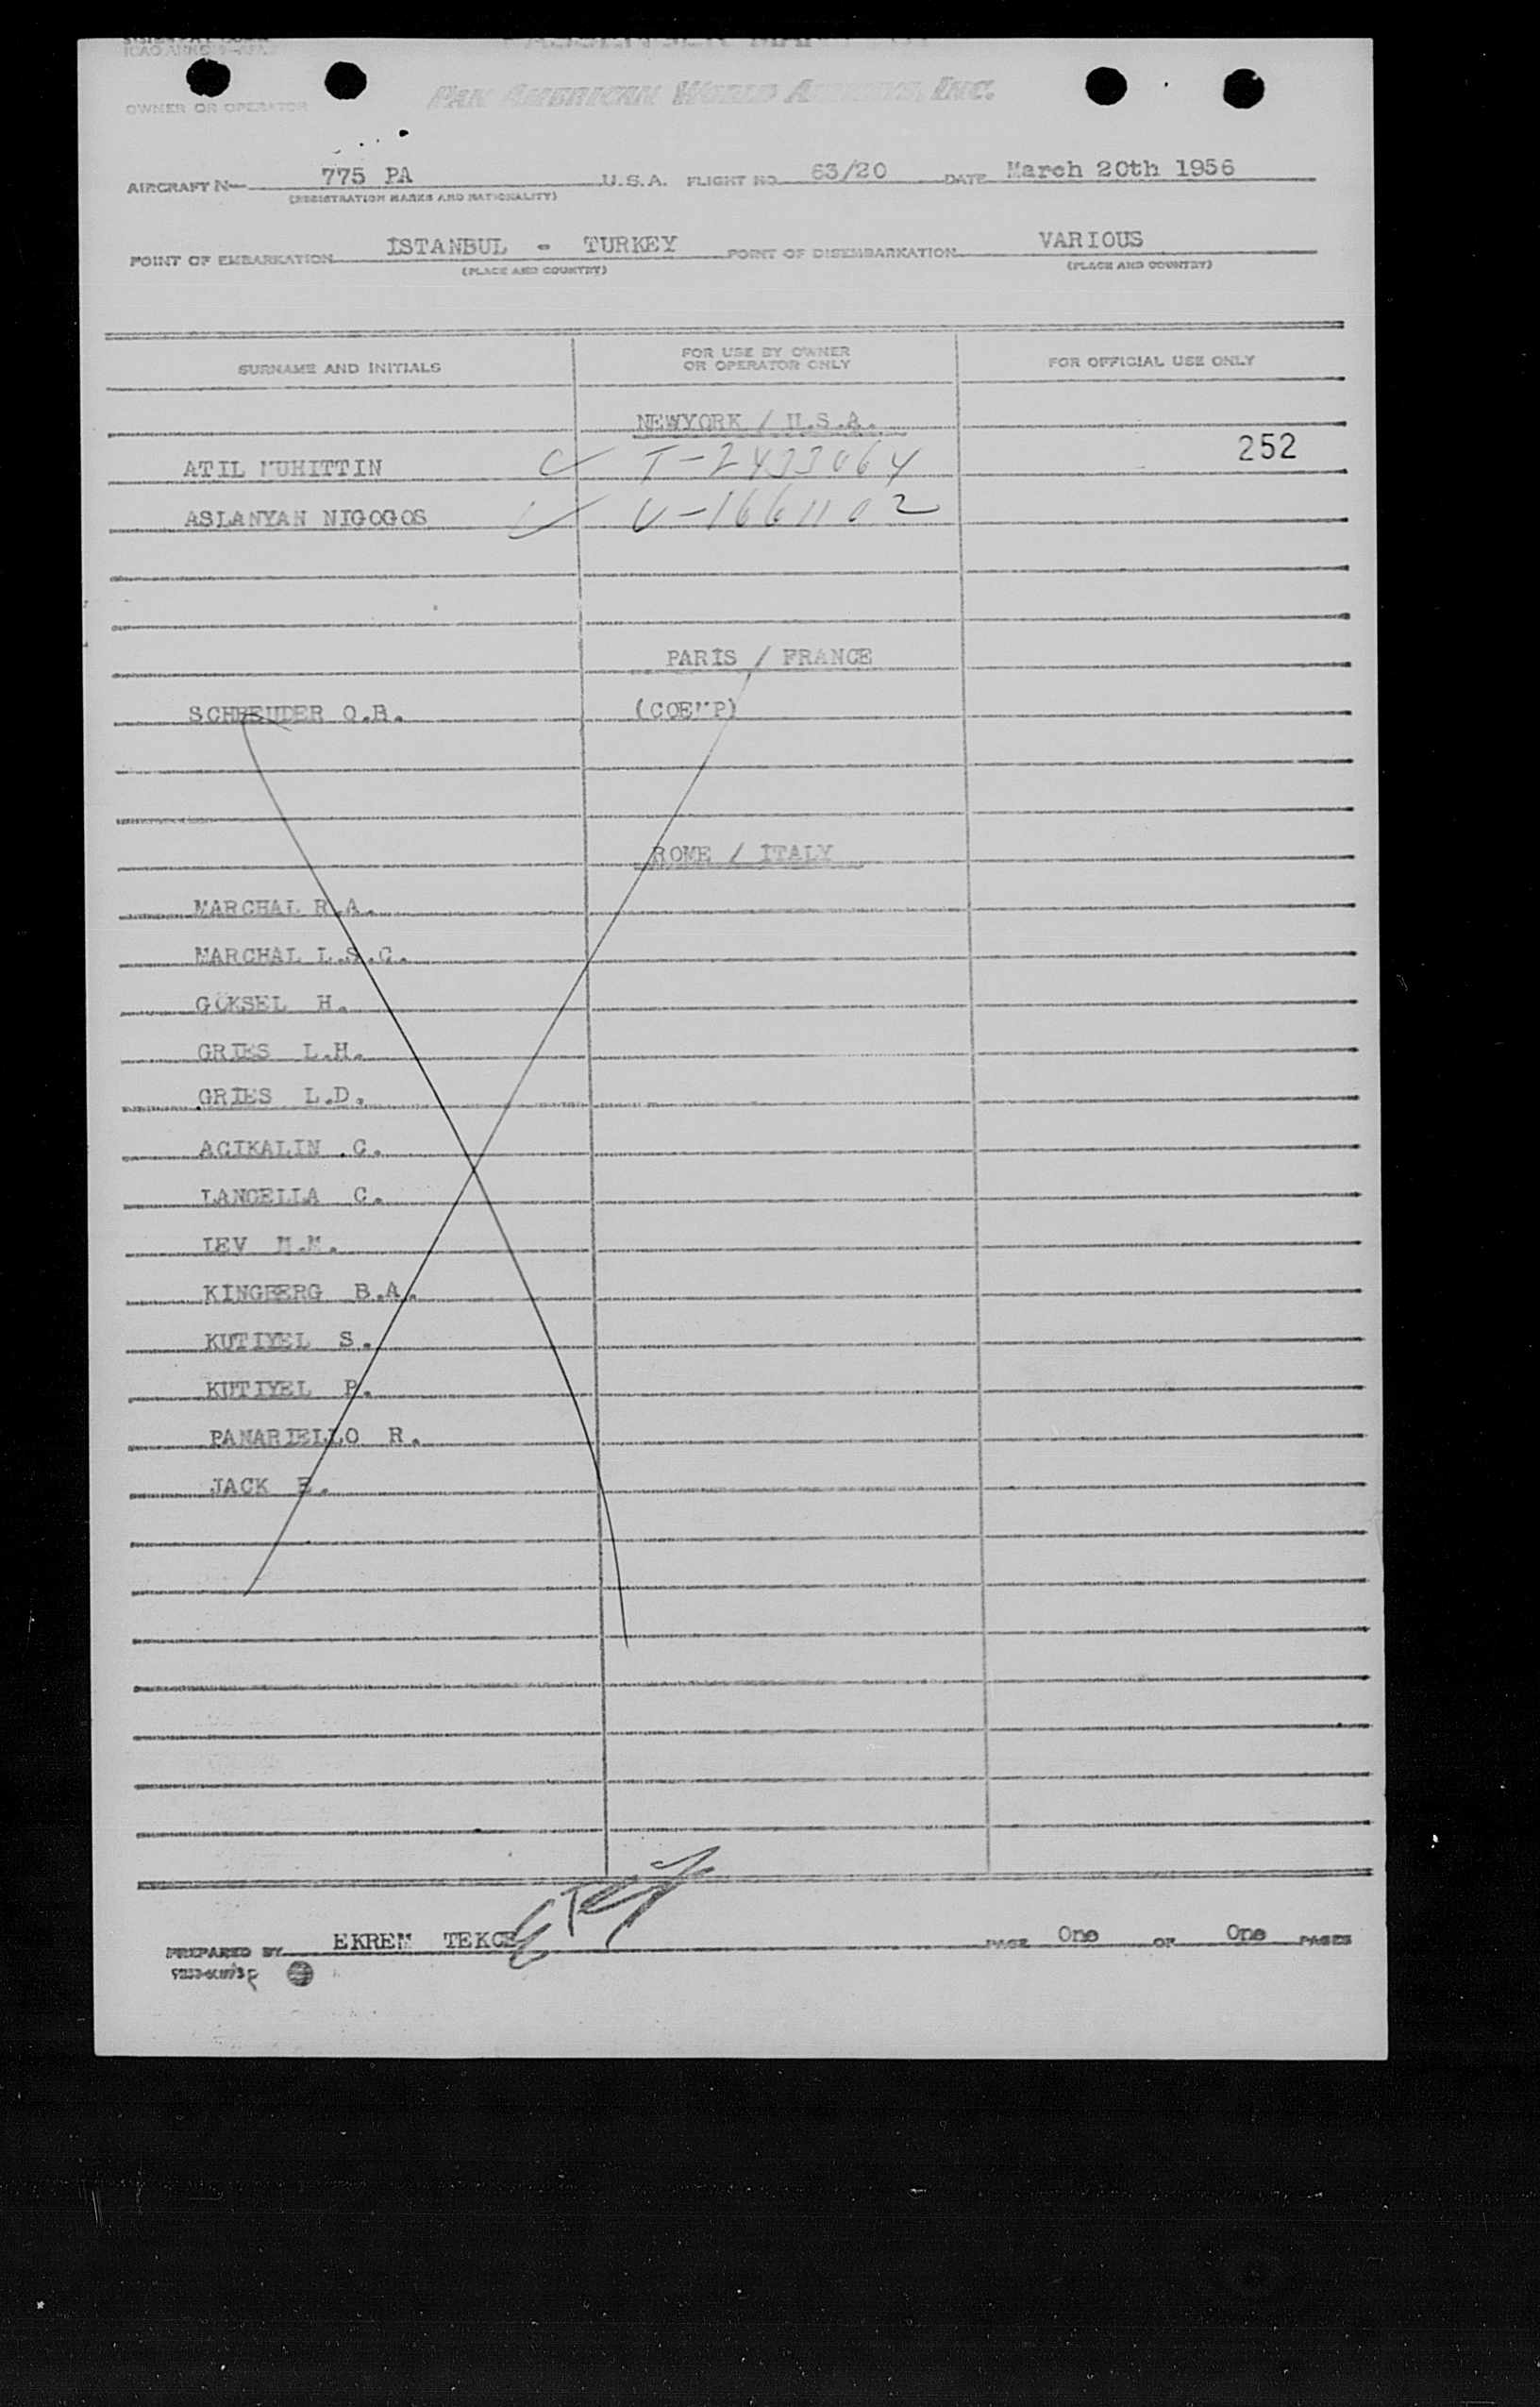 OWNER OR OPERATOR PAN AMERICAN WORLD AIRWAYS, INC.
AIRCRAFT N— 775 PA U.S.A. FLIGHT NO. 63/20 DATE March 20th 1956
(REGISTRATION MARKS AND NATIONALITY)
POINT OF EMBARKATION İSTANBUL - TURKEY POINT OF DISEMBARKATION VARIOUS
(PLACE AND COUNTRY) (PLACE AND COUNTRY)
SURNAME AND INITIALS FOR USE BY OWNER OR OPERATOR ONLY FOR OFFICIAL USE ONLY
NEWYORK / U.S.A.
252
ATIL MUHITTIN T-2433064
ASLANYAN NIGOGOS V-1661102
PARİS / FRANCE
SCHREUDER O.B.
ROME / İTALY
MARCHAL R.A.
MARCHAL L.S.C.
GÖKSEL H.
GRİES L.H.
GRİES L.D.
ACIKALIN C.
LANCELLA C.
LEV M.M.
KİNGBERG B.A.
KUTIYEL S.
KUTIYEL P.
PANARIELLO R.
JACK E.
PREPARED BY EKREM TEKCE PAGE One OF One PAGES